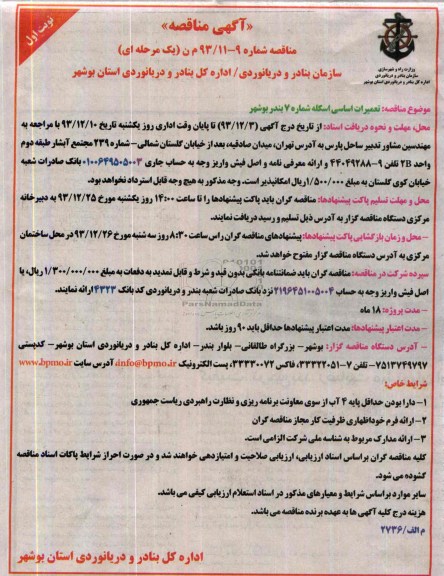 نوبت اول
«آگهی مناقصه»
مناقصه شماره ۹-۹۳/۱۱ م ن (یک مرحله ای)
سازمان بنادر و دریانوردی/ اداره کل بنادر و دریانوردی استان بوشهر
وزارت راه و شهرسازی
سازمان بنادر و دریانوردی
اداره کل بنادر و دریانوردی استان بوشهر
موضوع مناقصه: تعمیرات اساسی اسکله شماره ۷ بندر بوشهر
محل، مهلت و نحوه دریافت اسناد: از تاریخ درج آگهی (۹۳/۱۲/۳) تا پایان وقت اداری روز یکشنبه تاریخ ۹۳/۱۲/۱۰ با مراجعه به
مهندسین مشاور تدبیر ساحل پارس به آدرس تهران، میدان صادقیه، بعد از خیابان گلستان شمالی- شماره ۲۳۹ مجتمع آبشار طبقه دوم
واحد 2B تلفن ۹-۴۴۰۴۹۲۸۸ و ارائه معرفی نامه و اصل فیش واریز وجه به حساب جاری ۰۱۰۰۶۴۹۵۰۵۰۰۳ بانک صادرات شعبه
خیابان کوی گلستان به مبلغ ۱/۵۰۰/۰۰۰ ریال امکانپذیر است. وجه مذکور به هیچ وجه قابل استرداد نخواهد بود.
محل و مهلت تسلیم پاکت پیشنهادها: مناقصه گران باید پاکت پیشنهادها را تا ساعت ۱۴:۰۰ روز یکشنبه مورخ ۹۳/۱۲/۲۵ به دبیرخانه
مرکزی دستگاه مناقصه گزار به آدرس ذیل تسلیم و رسید دریافت نمایند.
- محل و زمان بازگشایی پاکت پیشنهادها: پیشنهادهای مناقصه گران راس ساعت ۸:۳۰ روز سه شنبه مورخ ۹۳/۱۲/۲۶ در محل ساختمان
مرکزی به آدرس دستگاه مناقصه گزار مفتوح خواهد شد.
سپرده شرکت در مناقصه: مناقصه گران باید ضمانتنامه بانکی بدون قید و شرط و قابل تمدید به دفعات به مبلغ ۱/۳۰۰/۰۰۰/۰۰۰ ریال، یا
اصل فیش واریز وجه به حساب ۲۱۹۶۴۵۱۰۰۵۰۰۴ نزد بانک صادرات شعبه بندر و دریانوردی کد بانک ۴۳۲۳ ارائه نمایند.
- مدت پروژه: ۱۸ ماه
- مدت اعتبار پیشنهادها: مدت اعتبار پیشنهادها حداقل باید ۹۰ روز باشد.
- آدرس دستگاه مناقصه گزار: بوشهر- بزرگراه طالقانی- بلوار بندر- اداره کل بنادر و دریانوردی استان بوشهر- کدپستی
۷۵۱۳۷۴۹۷۹۷- تلفن ۷-۳۳۳۲۲۰۵۱، فاکس ۳۳۳۳۰۰۷۲، پست الکترونیک info@bpmo.ir، آدرس سایت www.bpmo.ir
شرایط خاص:
۱- دارا بودن حداقل پایه ۴ آب از سوی معاونت برنامه ریزی و نظارت راهبردی ریاست جمهوری
۲- ارائه فرم خوداظهاری ظرفیت کار مجاز مناقصه گران
۳- ارائه مدارک مربوط به شناسه ملی شرکت الزامی است.
کلیه مناقصه گران براساس اسناد ارزیابی، ارزیابی صلاحیت و امتیازدهی خواهند شد و در صورت احراز شرایط پاکات اسناد مناقصه
گشوده می شود.
سایر موارد براساس شرایط و معیارهای مذکور در اسناد استعلام ارزیابی کیفی می باشد.
هزینه درج کلیه آگهی ها به عهده برنده مناقصه می باشد.
م الف/۲۷۳۶
اداره کل بنادر و دریانوردی استان بوشهر